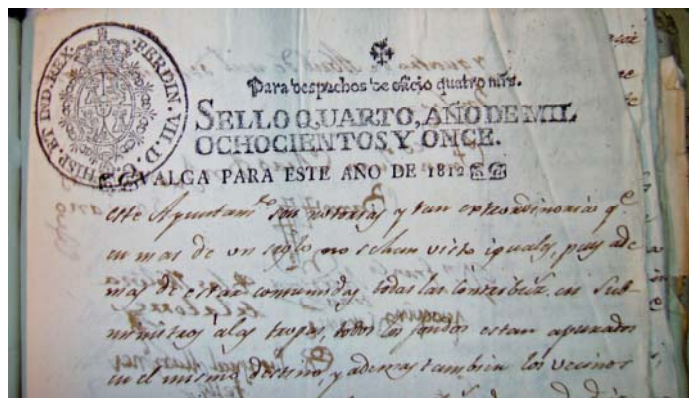 FERDIN. VII. D. G. HISP. ET IND. REX.
Para despachos de oficio quatro mrs.
SELLO QUARTO, AÑO DE MIL
OCHOCIENTOS Y ONCE.
VALGA PARA ESTE AÑO DE 1812
este Ayuntamto. son notorias y tan extraordinarias qe.
en mas de un siglo no se han visto iguales, pues ade
mas de estar consumidas todas las contribuz. en Sub-
ministros á las tropas, todos los fondos estan apurados
en el mismo destino, y ademas tambien los vecinos